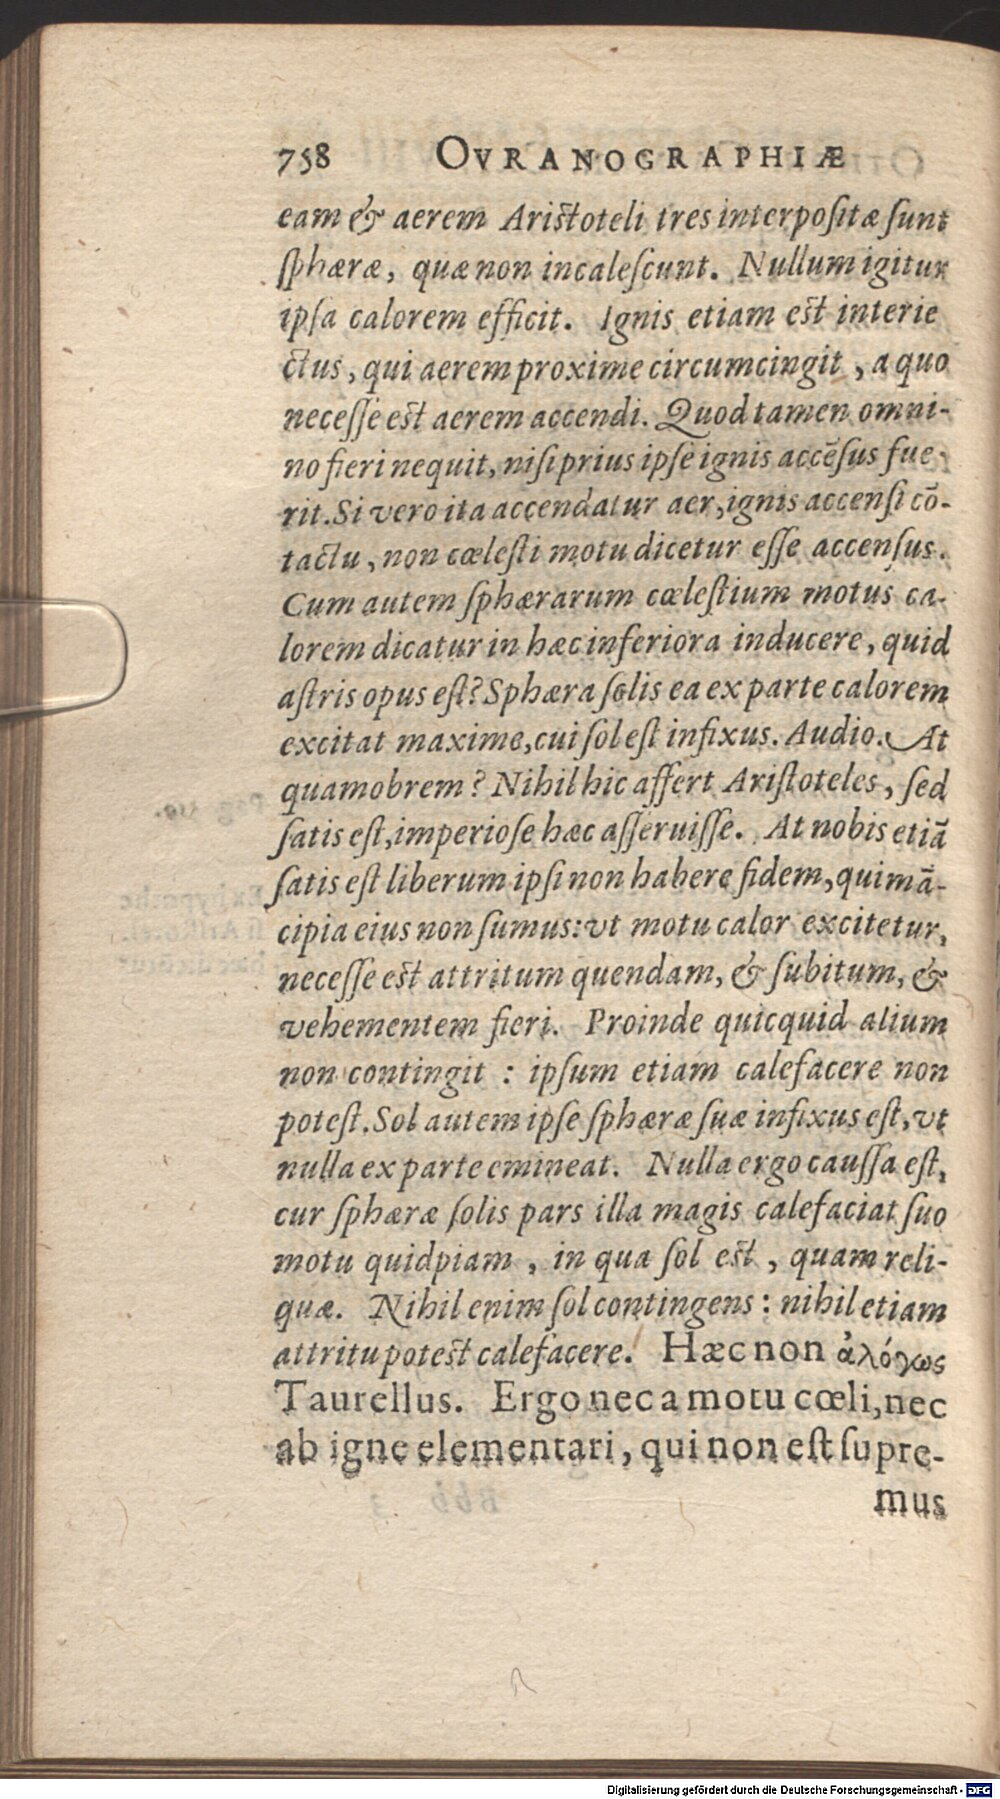 758 OVRANOGRAPHIÆ
eam & aerem Aristoteli tres interpositæ sunt
sphæræ, quæ non incalescunt. Nullum igitur
ipsa calorem efficit. Ignis etiam est interie
ctus, qui aerem proxime circumcingit, a quo
necesse est aerem accendi. Quod tamen omni-
no fieri nequit, nisi prius ipse ignis accẽsus fue-
rit. Si vero ita accendatur aer, ignis accensi cõ-
tactu, non cœlesti motu dicetur esse accensus.
Cum autem sphærarum cœlestium motus ca-
lorem dicatur in hæc inferiora inducere, quid
astris opus est? Sphæra solis ea ex parte calorem
excitat maxime, cui sol est infixus. Audio. At
quamobrem? Nihil hic affert Aristoteles, sed
satis est, imperiose hæc asseruisse. At nobis etiã
satis est liberum ipsi non habere fidem, qui mã-
cipia eius non sumus: vt motu calor excitetur,
necesse est attritum quendam, & subitum, &
vehementem fieri. Proinde quicquid alium
non contingit : ipsum etiam calefacere non
potest. Sol autem ipse sphæræ suæ infixus est, vt
nulla ex parte emineat. Nulla ergo caussa est,
cur sphæræ solis pars illa magis calefaciat suo
motu quidpiam, in qua sol est, quam reli-
quæ. Nihil enim sol contingens : nihil etiam
attritu potest calefacere. Hæc non ἀλόγως
Taurellus. Ergo nec a motu cœli, nec
ab igne elementari, qui non est supre-
mus
Digitalisierung gefördert durch die Deutsche Forschungsgemeinschaft - DFG